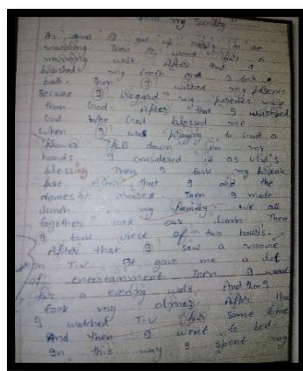 my Sunday
As usual I got up early in the
morning. Then I went for a
morning walk. After that I
brushed my teeth and I took a
bath. Then I wished my parents
Because I regard my parents more
than God. After that I worshiped
God
When I was praying to God a
flower fell down on my
hands I considered it as God's
blessing. Then I took my break
fast After that I did the
domestic chores. Then I made
lunch for my family. We all
together took our lunch. Then
I took of two hours.
After that I saw a movie
on T.V. It gave me a lot
of entertainment Then I went
for a evening walk. And then I
took my dinner. After that
I watched T.V for some time
And then I went to bed.
In this way I spent my